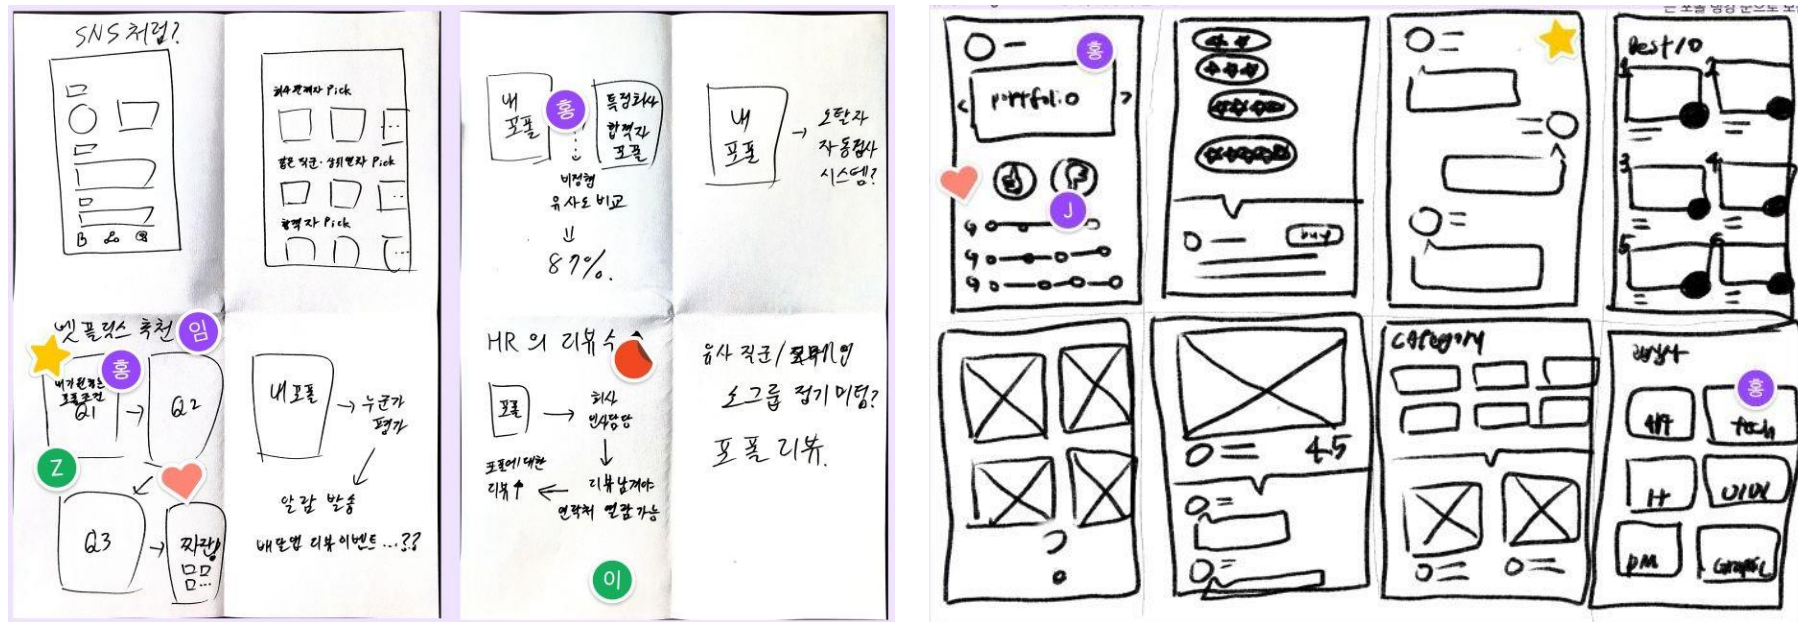 SNS처럼?
회사 관계자 Pick
같은 직군·상위연차 Pick
합격자 Pick
넷플릭스 추천
임
홍
내가 원하는
포폴조건
Q1
Q2
Z
Q3
짜란!
내포폴
누군가
평가
알람 발송
배달앱 리뷰이벤트...??
내
포폴
홍
특정회사
합격자
포폴
비정형
유사도 비교
87%.
내
포폴
오탈자
자동검사
시스템?
HR의 리뷰수
포폴
회사
인사담당
리뷰남겨야
연락처 열람가능
포폴에 대한
리뷰↑
이
유사 직군/
소그룹 정기미팅?
포폴리뷰.
홍
portfolio
J
buy
Best 10
1
2
3
4
5
6
4.5
CATEgORY
홍
tech
UIUX
PM